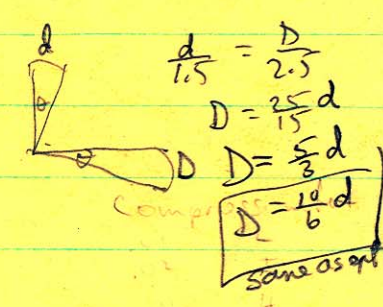 d
θ
θ D
d/1.5 = D/2.5
D = 25/15 d
D = 5/3 d
D = 10/6 d
same as